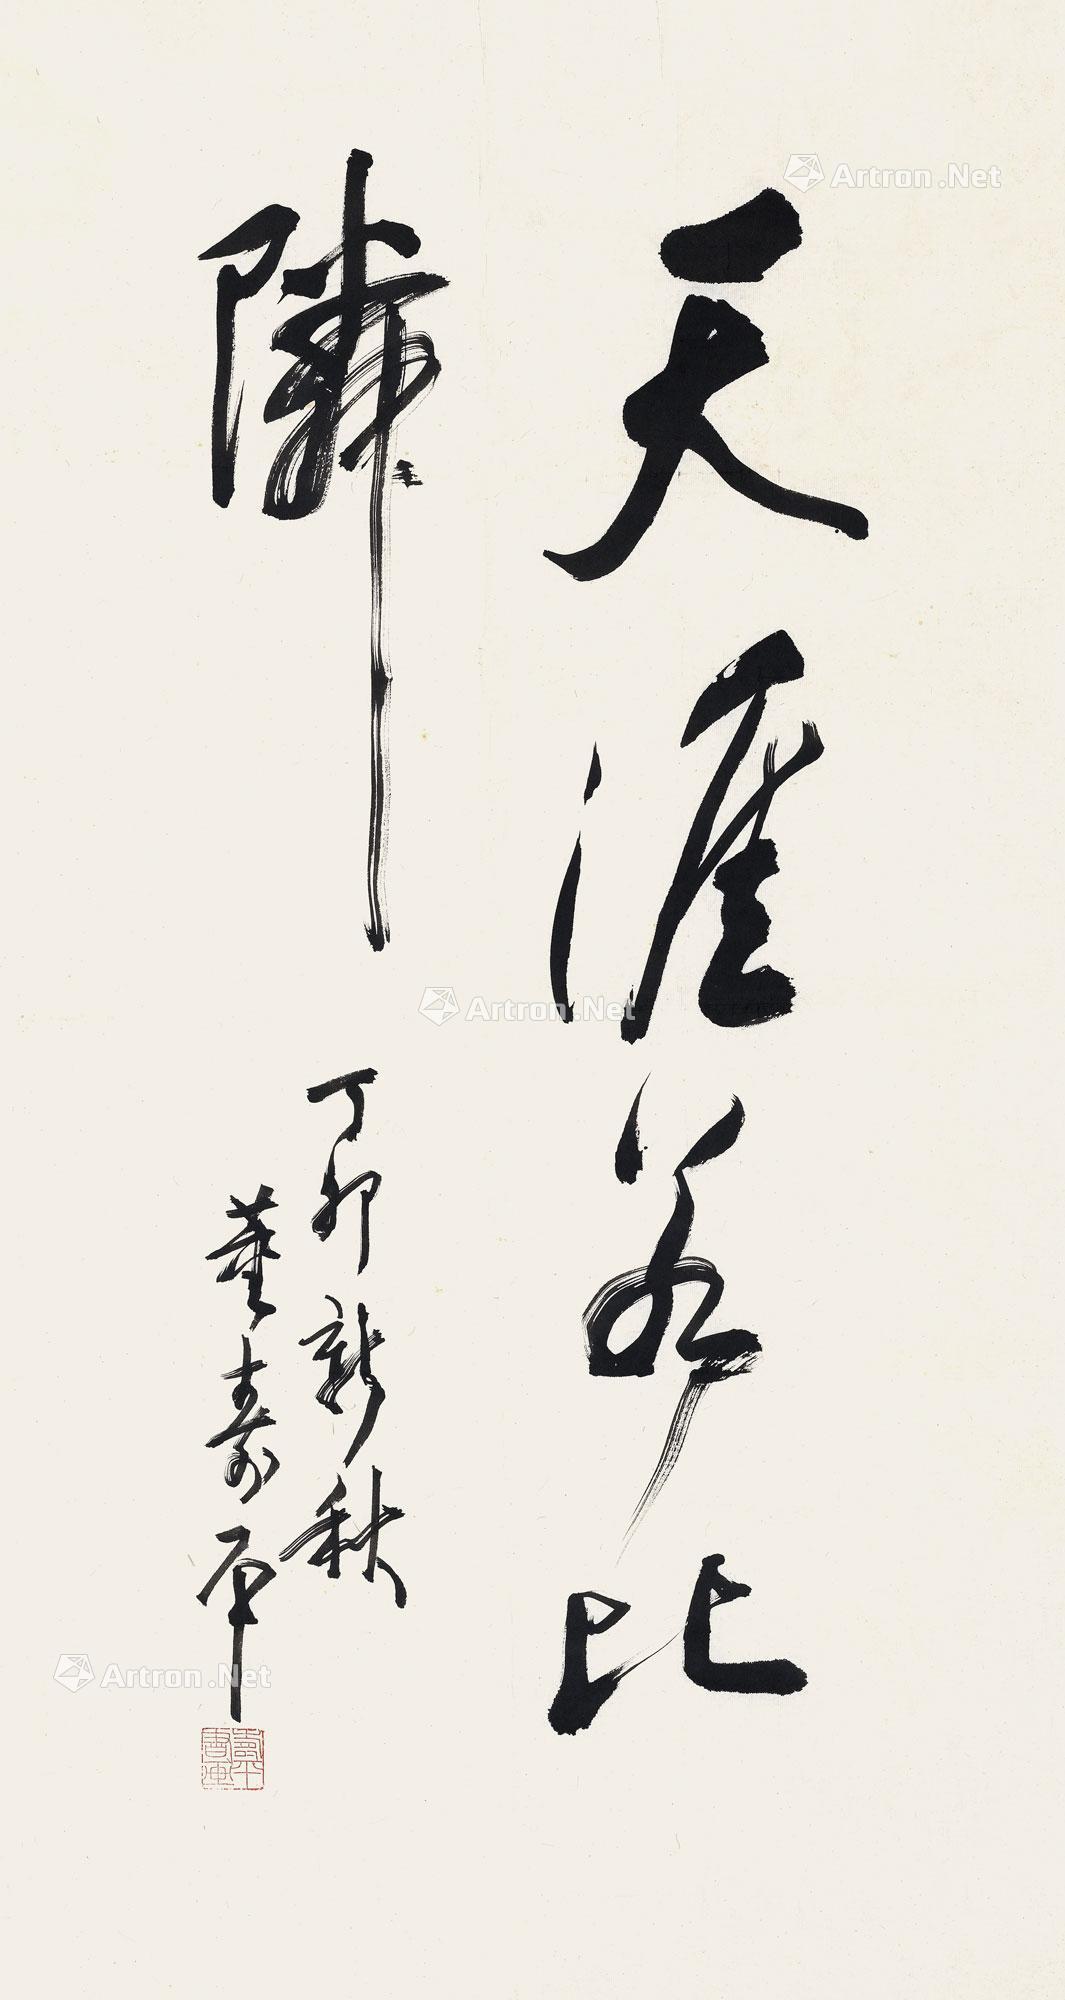 天涯若比
隣
丁卯新秋
董寿平
寿平
書画
Artron.Net
Artron.Net
Artron.Net